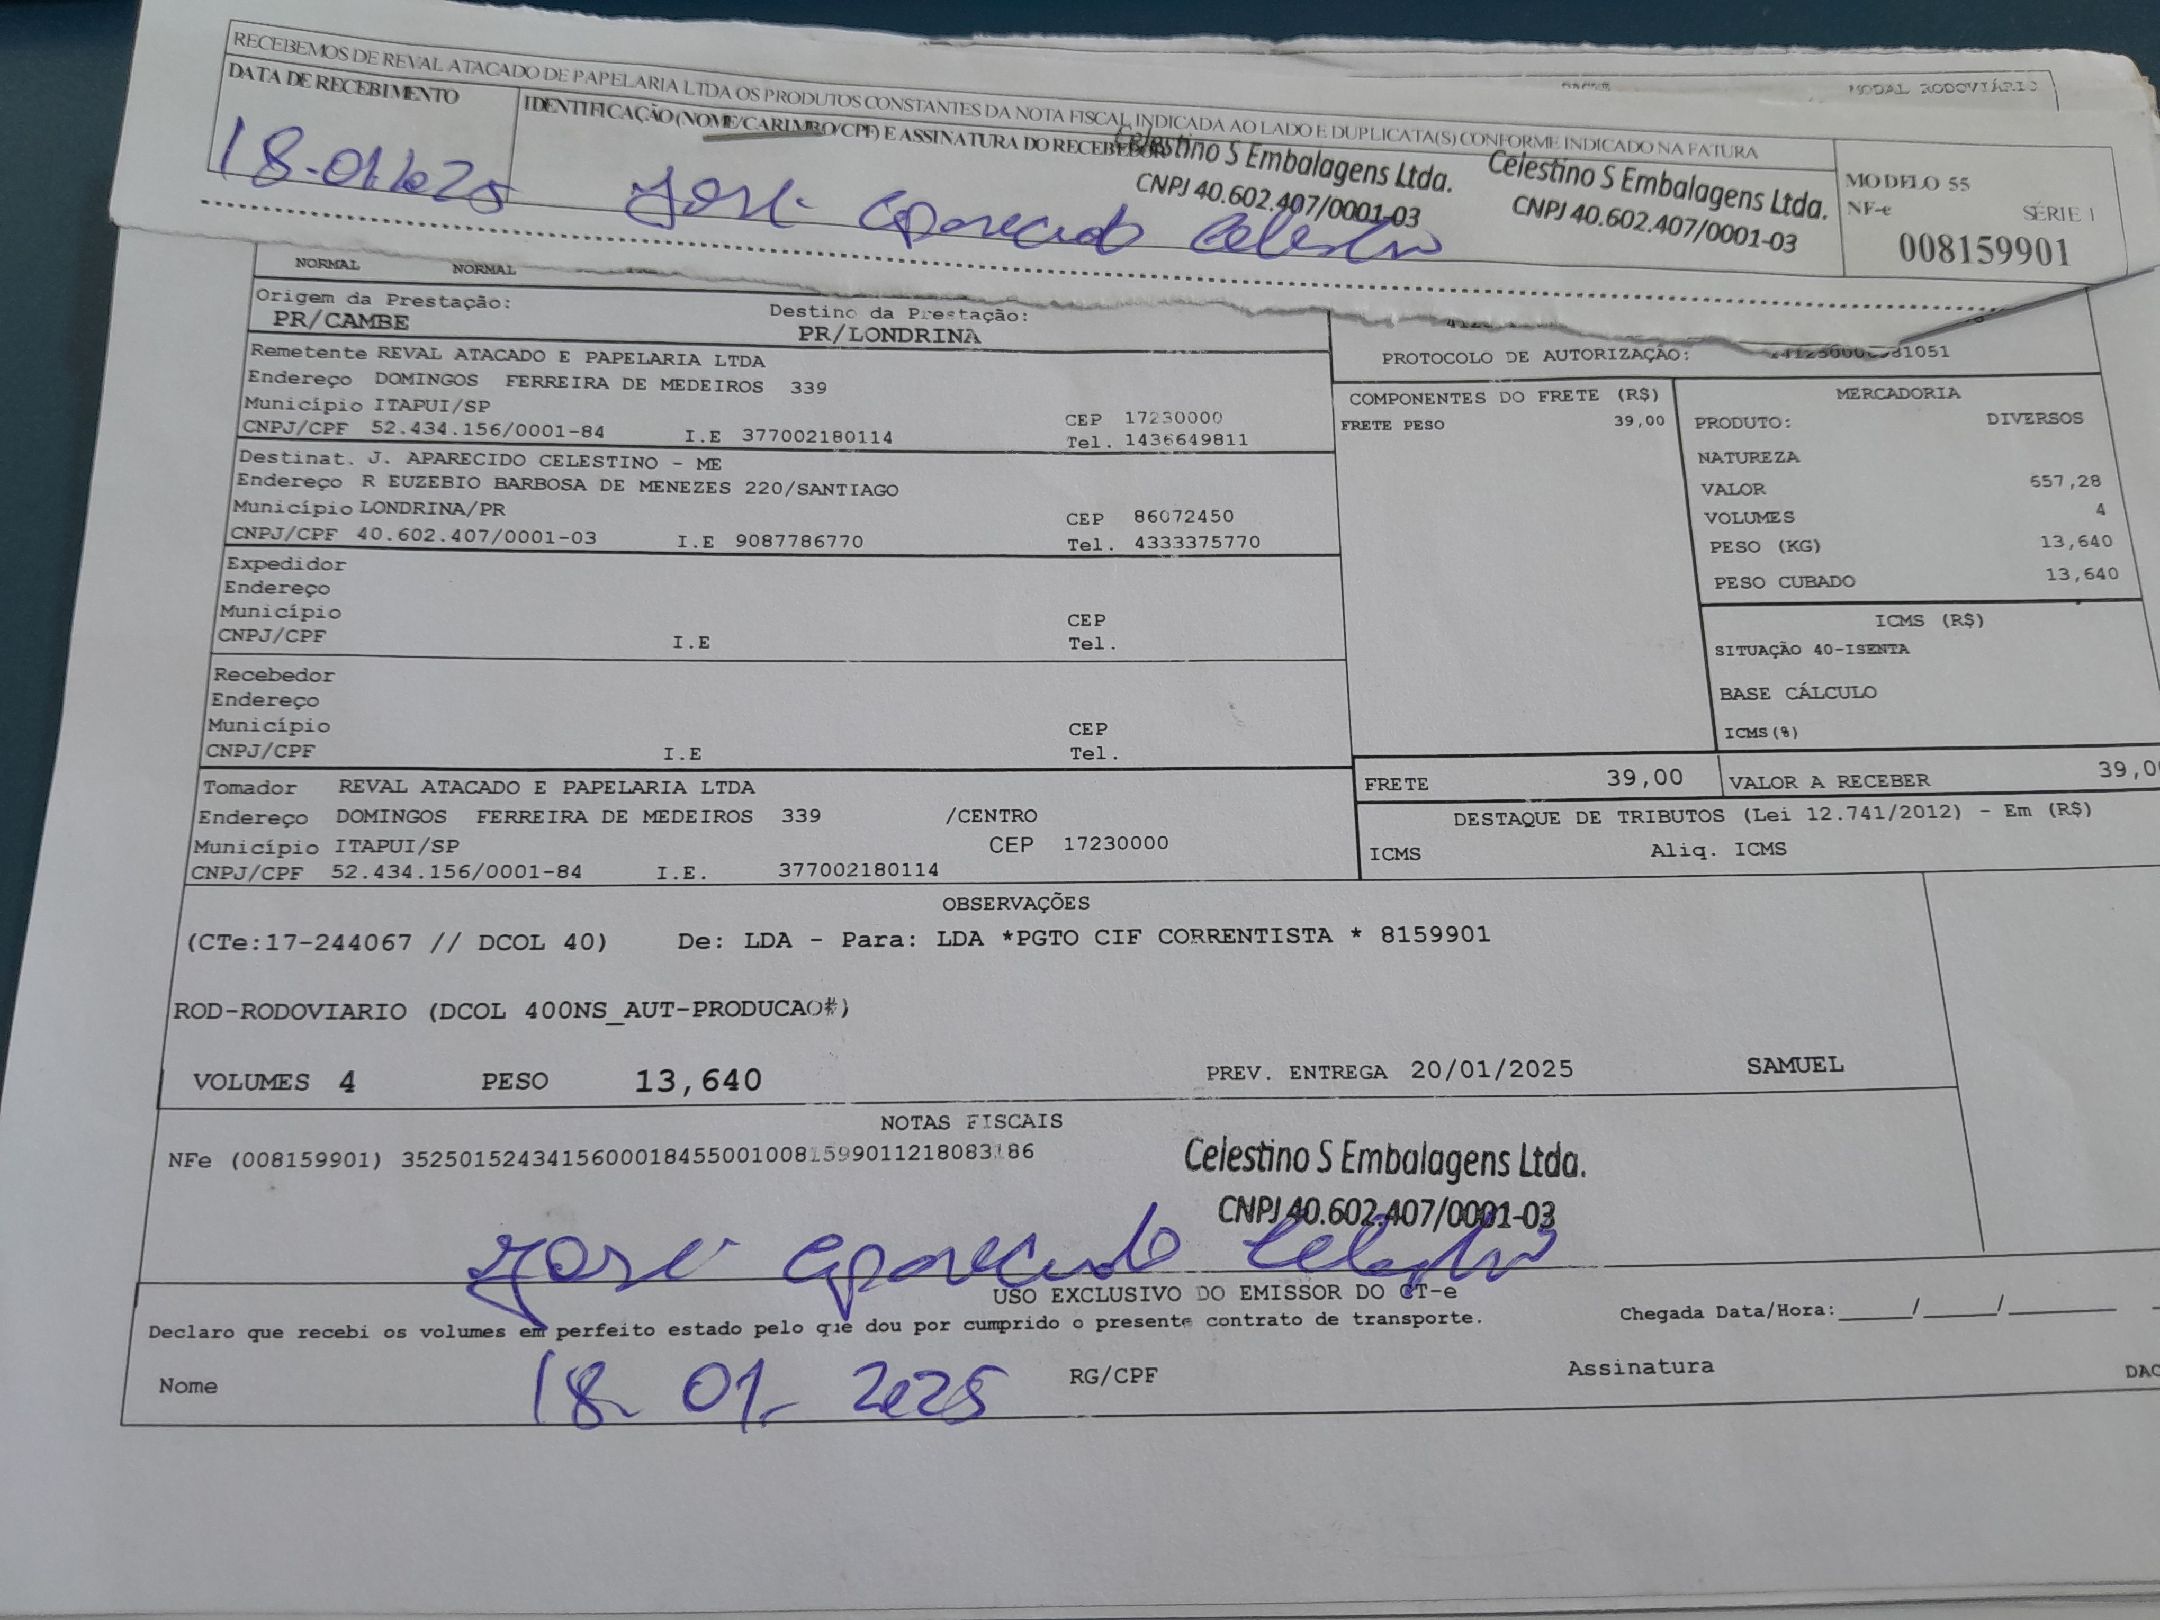 RECEBEMOS DE REVAL ATACADO DE PAPELARIA LTDA OS PRODUTOS CONSTANTES DA NOTA FISCAL INDICADA AO LADO E DUPLICATA(S) CONFORME INDICADO NA FATURA
MODAL RODOVIÁRIO
DATA DE RECEBIMENTO
IDENTIFICAÇÃO (NOME/CARIMBO/CPF) E ASSINATURA DO RECEBEDOR
18-01-2025
José Aparecido Celestino
Celestino S Embalagens Ltda.
CNPJ 40.602.407/0001-03
Celestino S Embalagens Ltda.
CNPJ 40.602.407/0001-03
MODELO 55
NF-e SÉRIE 1
008159901
NORMAL NORMAL
Origem da Prestação: Destino da Prestação:
PR/CAMBE PR/LONDRINA
PROTOCOLO DE AUTORIZAÇÃO:
Remetente REVAL ATACADO E PAPELARIA LTDA
Endereço DOMINGOS FERREIRA DE MEDEIROS 339
Município ITAPUI/SP CEP 17230000
CNPJ/CPF 52.434.156/0001-84 I.E 377002180114 Tel. 1436649811
Destinat. J. APARECIDO CELESTINO - ME
Endereço R EUZEBIO BARBOSA DE MENEZES 220/SANTIAGO
Município LONDRINA/PR CEP 86072450
CNPJ/CPF 40.602.407/0001-03 I.E 9087786770 Tel. 4333375770
Expedidor
Endereço
Município CEP
CNPJ/CPF I.E Tel.
Recebedor
Endereço
Município CEP
CNPJ/CPF I.E Tel.
Tomador REVAL ATACADO E PAPELARIA LTDA
Endereço DOMINGOS FERREIRA DE MEDEIROS 339 /CENTRO
Município ITAPUI/SP CEP 17230000
CNPJ/CPF 52.434.156/0001-84 I.E. 377002180114
COMPONENTES DO FRETE (R$)
FRETE PESO 39,00
MERCADORIA
PRODUTO: DIVERSOS
NATUREZA
VALOR 657,28
VOLUMES 4
PESO (KG) 13,640
PESO CUBADO 13,640
ICMS (R$)
SITUAÇÃO 40-ISENTA
BASE CÁLCULO
ICMS(%)
FRETE 39,00 VALOR A RECEBER 39,0
DESTAQUE DE TRIBUTOS (Lei 12.741/2012) - Em (R$)
ICMS Aliq. ICMS
OBSERVAÇÕES
(CTe:17-244067 // DCOL 40) De: LDA - Para: LDA *PGTO CIF CORRENTISTA * 8159901
ROD-RODOVIARIO (DCOL 400NS_AUT-PRODUCAO#)
VOLUMES 4 PESO 13,640 PREV. ENTREGA 20/01/2025 SAMUEL
NOTAS FISCAIS
NFe (008159901) 35250152434156000184550010081599011218083186
Celestino S Embalagens Ltda.
CNPJ 40.602.407/0001-03
José Aparecido Celestino
USO EXCLUSIVO DO EMISSOR DO CT-e
Declaro que recebi os volumes em perfeito estado pelo que dou por cumprido o presente contrato de transporte.
Chegada Data/Hora:_____/_____/_______
Nome 18-01-2025 RG/CPF Assinatura DAC